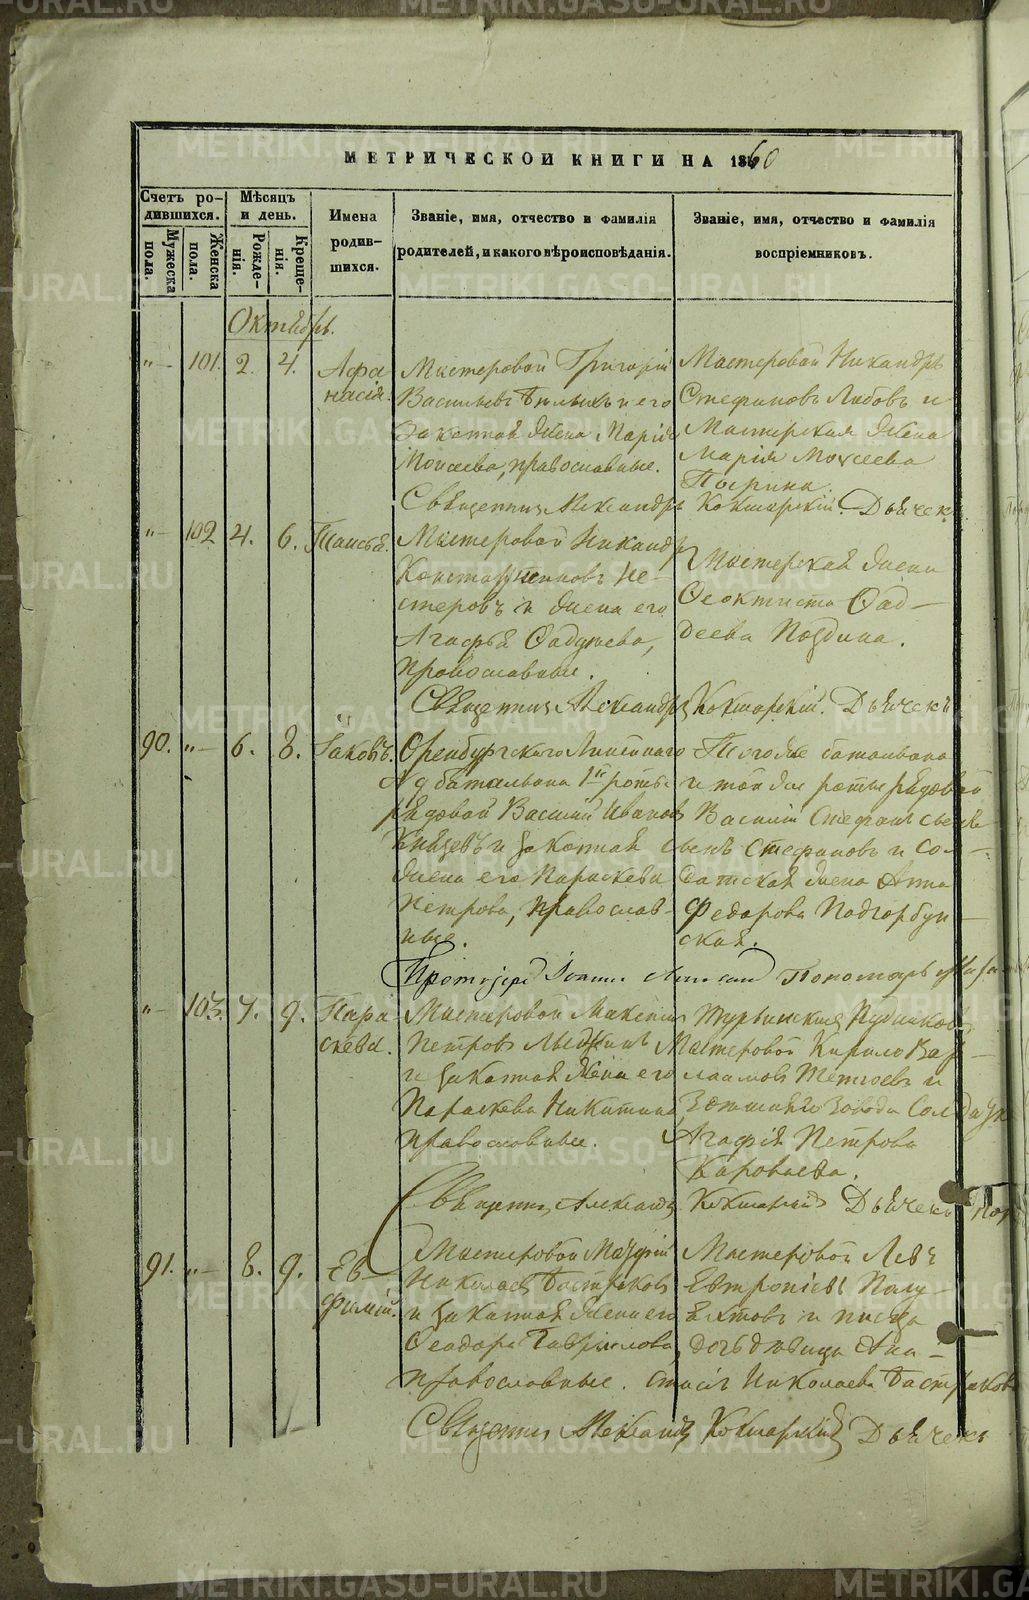 METRIKI.GASO-URAL.RU
МЕТРИЧЕСКОЙ КНИГИ НА 1860
Счетъ родившихся.
Мужеска пола.
Женска пола.
Мѣсяцъ и день.
Рожденія.
Крещенія.
Имена родившихся.
Званіе, имя, отчество и фамилія
родителей, и какого вѣроисповѣданія.
Званіе, имя, отчество и фамилія
воспріемниковъ.
Октябрь.
"— 101. 2. 4. Афанасія.
Мастеровой Григорій
Васильевъ Бѣлыхъ и его
законная жена Марія
Моисеева, православные.
Мастеровой Никандръ
Стефановъ и
Мастерская жена
Марія Моисеева
Священникъ Александръ Кокшарскій. Дьячекъ
"— 102 4. 6. Таисья.
Мастеровой Никандръ
Константиновъ Не-
стеровъ и жена его
Агафья Фаддеева,
православные.
Мастерская жена
Феоктиста Фад-
деева Поздина.
Священникъ Александръ Кокшарскій. Дьячекъ
90. "— 6. 8. Іаковъ.
Оренбургскаго Линейнаго
баталіона 1й роты
рядовой Василій Ивановъ
Князевъ и законная
жена его Параскева
Петрова, православ-
ные.
Того же баталіона
и той же роты рядовой
Василій Стефановъ
сынъ Стефановъ и сол-
датская жена Анна
Федорова Подгорбун-
ская.
Протоіерей Іоаннъ Пономарь
"— 103. 7. 9. Параскева.
Мастеровой Максимъ
Петровъ
и законная жена его
Параскева Никитина
православные.
Турьинскихъ Рудниковъ
Мастеровой Кирило Вар-
лаамовъ и
завода
Агафія Петрова
Караваева.
Священникъ Александръ Кокшарскій Дьячекъ
91. "— 8. 9. Евфимій.
Мастеровой
Николаевъ Бастраковъ
и законная жена его
Феодора Гаврилова,
православные.
Мастеровой Левъ
Евтропіевъ Полу-
ектовъ и писца
дочь дѣвица Ана-
стасія Николаева Бастракова
Священникъ Александръ Кокшарскій Дьячекъ